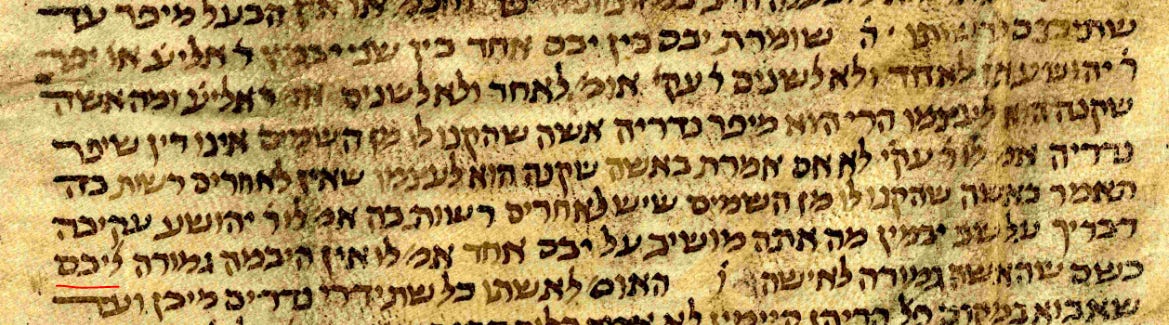 הבעל מיפר עד
ה שומרת יבם בין יבם אחד בין שני יבמין ר אליע' או' יפר
ר' יהושע או' לאחד ולא לשנים ר עקי' אומ' לאחד ולא לשנים אמ' ר אליע' ומה אשה
שקנה הוא לעצמו הרי הוא מיפר נדריה אשה שהקנו לו מן השמים אינו דין שיפר
נדריה אמ' לו ר' עקי' לא אם אמרת באשה שקנה הוא לעצמו שאין לאחרים רשות בה
תאמר באשה שהקנו לו מן השמים שיש לאחרים רשות בה אמ' לו ר' יהושע עקיבה
דבריך על שני יבמין מה אתה מושיב על יבם אחד אמ' לו אין היבמה גמורה ליבם
כשם שהאשה גמורה לאישה ו האומ' לאשתו כל שתידרי נדרים מיכן ועד
שאבוא במקום פל' הרי הן קיימין לא